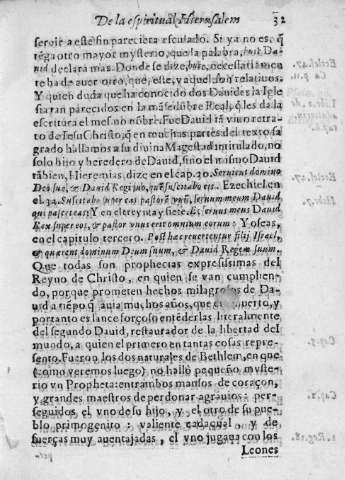 De la espiritual Hierusalem 32
seruir a este fin pareciera escusado. Si ya no es, q̃
tẽga otro mayor mysterio, que la palabra,
declara mas. Donde se dize, necessariamente
te ha de auer otro, que este, y aquel son relatiuos.
Y quien duda que ha conocido dos Dauides la Igle
sia tan parecidos en la mãsedũbre Real, q̃ les da la
escritura el mesmo nõbre. Fue Dauid tã viuo retra-
to de Iesu Christo, q̃ en muchas partes del texto sa
grado hallamos a su diuina Magestad intitulado, no
solo hijo y heredero de Dauid, sino el mismo Dauid
tãbien, Hieremias, dize en el cap. 30. Seruient domino
Deo suo, & Dauid Regi suo, quẽ suscitabo eis. Ezechiel en
el 34. Suscitabo super eas pastorẽ vnũ, seruum meum Dauid,
qui pascet eas; Y en el treynta y siete. Et seruus meus Dauid
Rex super eos, & pastor vnus erit omnium eorum: Y Oseas,
en el capitulo tercero. Post hæc reuertentur filij Israel,
& quærent dominum Deum suum, & Dauid Regem suum.
Que todas son prophecias expressissimas del
Reyno de Christo, en quien se van cumplien-
do, porque prometen hechos milagrosos de Da-
uid a tiẽpo q̃ auia muchos años, que era muerto, y
portanto es lance forçoso entẽderlas literalmente
del segundo Dauid, restaurador de la libertad del
mundo, a quien el primero en tantas cosas repre-
sento. Fueron los dos naturales de Bethlem, en que
(como veremos luego) no hallò pequeño myste-
rio vn Propheta: entrambos mansos de coraçon,
y grandes maestros de perdonar agrauios: per-
seguidos, el vno de su hijo, y el otro de su pue-
blo primogenito: valiente cadaqual, y de
fuerças muy auentajadas, el vno jugaua con los
Leones